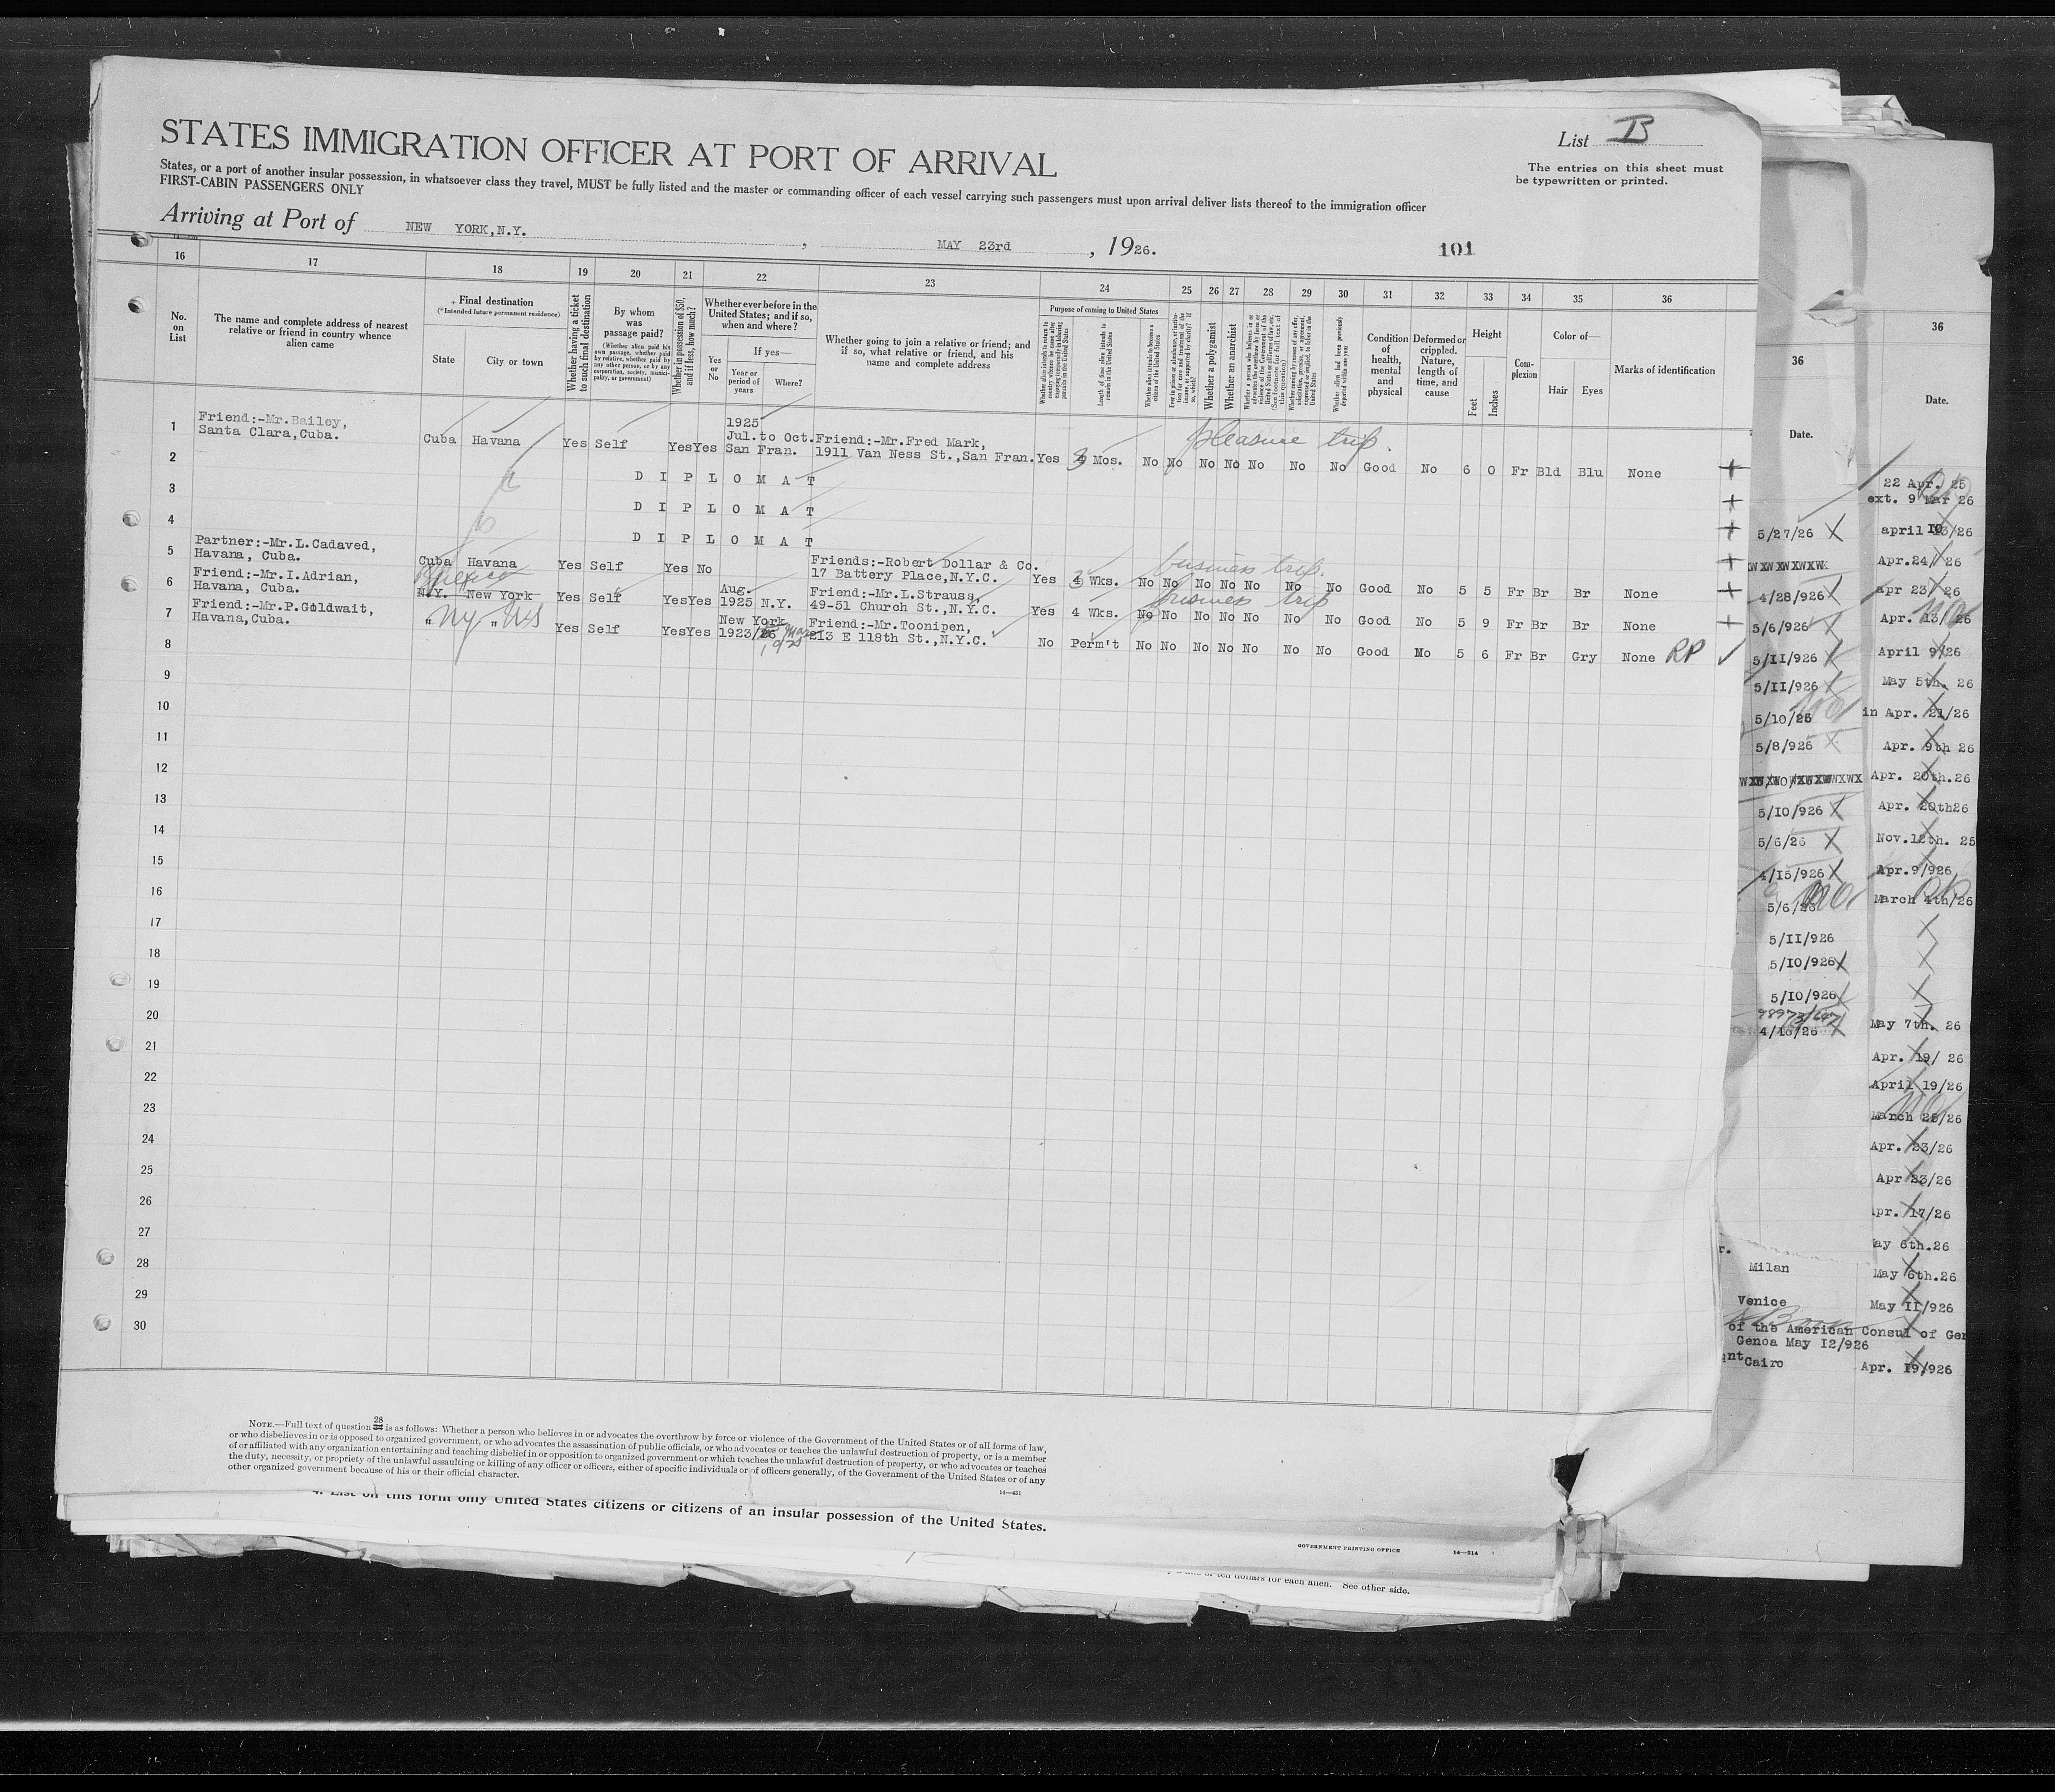 STATES IMMIGRATION OFFICER AT PORT OF ARRIVAL
List B
The entries on this sheet must
be typewritten or printed.
States, or a port of another insular possession, in whatsoever class they travel, MUST be fully listed and the master or commanding officer of each vessel carrying such passengers must upon arrival deliver lists thereof to the immigration officer
FIRST-CABIN PASSENGERS ONLY
Arriving at Port of NEW YORK,N.Y. , MAY 23rd , 1926.
101
16 17 18 19 20 21 22 23 24 25 26 27 28 29 30 31 32 33 34 35 36
No. on List
The name and complete address of nearest
relative or friend in country whence
alien came
Final destination
(*Intended future permanent residence)
State
City or town
Whether having a ticket
to such final destination
By whom
was
passage paid?
(Whether alien paid his
own passage, whether paid
by relative, whether paid by
any other person, or by any
corporation, society, munici-
pality, or government)
Whether in possession of $50,
and if less, how much?
Whether ever before in the
United States; and if so,
when and where?
Yes
or
No
If yes—
Year or
period of
years
Where?
Whether going to join a relative or friend; and
if so, what relative or friend, and his
name and complete address
Purpose of coming to United States
Length of time alien intends to
remain in the United States
Whether alien intends to become a
citizen of the United States
Whether a polygamist
Whether an anarchist
Condition
of
health,
mental
and
physical
Deformed or
crippled.
Nature,
length of
time, and
cause
Height
Feet
Inches
Com-
plexion
Color of—
Hair
Eyes
Marks of identification
1925
Friend:-Mr.Bailey,
Santa Clara,Cuba.
1 Cuba Havana Yes Self Yes Yes Jul.to Oct.
San Fran. Friend:-Mr.Fred Mark,
1911 Van Ness St.,San Fran. Yes 3 Mos. No No No No No No No Good No 6 0 Fr Bld Blu None
pleasure trip.
2 DIPLOMAT
3 DIPLOMAT
4 DIPLOMAT
Partner:-Mr.L.Cadaved,
Havana, Cuba.
5 Cuba Havana Yes Self Yes No Friends:-Robert Dollar & Co.
17 Battery Place,N.Y.C. Yes Wks. No No No No No No No Good No 5 5 Fr Br Br None
business trip.
Friend:-Mr.I.Adrian,
Havana, Cuba.
6 N.Y. New York Yes Self Yes Yes Aug.
1925 N.Y. Friend:-Mr.L.Strauss,
49-51 Church St.,N.Y.C. Yes 4 Wks. No No No No No No No Good No 5 9 Fr Br Br None
business trip
Friend:-Mr.P.Goldwait,
Havana,Cuba.
7 " NY " US Yes Self Yes Yes New York
1923/26 Friend:-Mr.Toonipen,
213 E 118th St.,N.Y.C. No Perm't No No No No No No No Good No 5 6 Fr Br Gry None RP
8
9
10
11
12
13
14
15
16
17
18
19
20
21
22
23
24
25
26
27
28
29
30
NOTE.—Full text of question 28 is as follows: Whether a person who believes in or advocates the overthrow by force or violence of the Government of the United States or of all forms of law,
or who disbelieves in or is opposed to organized government, or who advocates the assassination of public officials, or who advocates or teaches the unlawful destruction of property, or is a member
of or affiliated with any organization entertaining and teaching disbelief in or opposition to organized government or which teaches the unlawful destruction of property, or who advocates or teaches
the duty, necessity, or propriety of the unlawful assaulting or killing of any officer or officers, either of specific individuals or of officers generally, of the Government of the United States or of any
other organized government because of his or their official character.
14—431
4. List on this form only United States citizens or citizens of an insular possession of the United States.
GOVERNMENT PRINTING OFFICE 14—314
of ten dollars for each alien. See other side.
36
Date.
5/27/26
4/28/926
5/6/926
5/11/926
5/11/926
5/10/25
5/8/926
5/10/926
5/6/26
4/15/926
5/6/26
5/11/926
5/10/926
5/10/926
4/16/26
Milan
Venice
of the American Consul of Gen
Genoa May 12/926
Cairo
36
Date.
22 Apr. 25
ext. 9 Mar 26
april /26
Apr.24/ 26
apr 23/ 26
Apr. 13/ 26
April 9/26
May 5th. 26
in Apr. 21/26
Apr. 9th 26
Apr. 20th.26
Apr. 20th26
Nov.12th. 25
Apr.9/926
March 4th/26
May 7th. 26
Apr. 19/ 26
April 19/26
March 25/26
Apr. 23/26
Apr 23/26
pr. 17/26
ay 6th.26
May 6th.26
May 11/926
Apr. 19/926